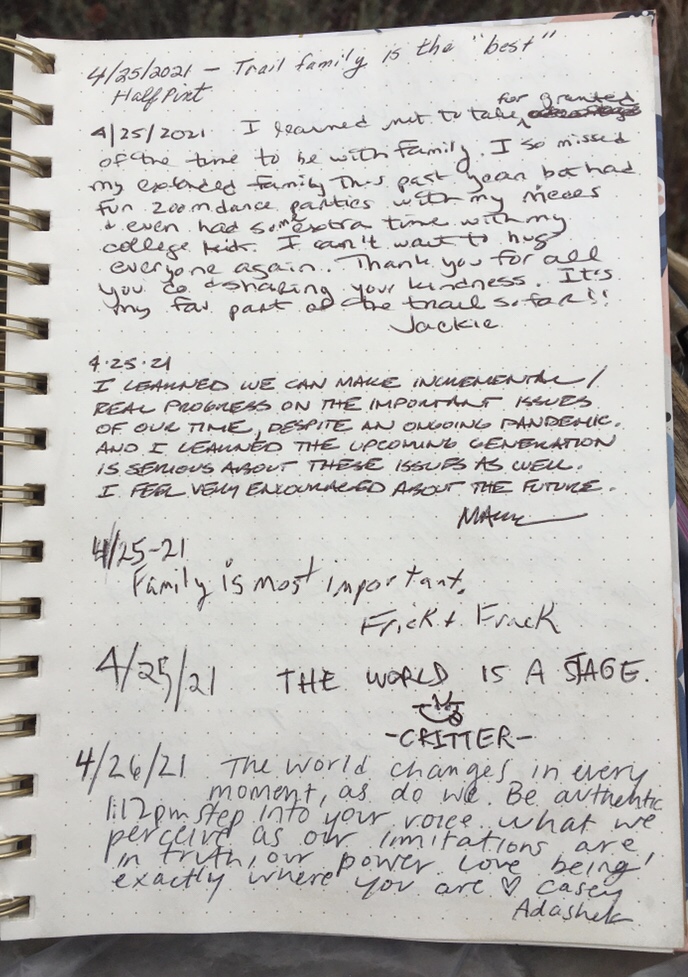 4/25/2021 – Trail family is the "best"
Half Pint
for granted
4/25/2021 I learned not to take
of the time to be with family. I so missed
my extended family this past year but had
fun zoom dance parties with my nieces
& even had some extra time with my
college kid. I can't wait to hug
everyone again. Thank you for all
you do & sharing your kindness. It's
my fav part of the trail so far!!
Jackie
4.25.21
I LEARNED WE CAN MAKE INCREMENTAL/
REAL PROGRESS ON THE IMPORTANT ISSUES
OF OUR TIME, DESPITE AN ONGOING PANDEMIC.
AND I LEARNED THE UPCOMING GENERATION
IS SERIOUS ABOUT THESE ISSUES AS WELL.
I FEEL VERY ENCOURAGED ABOUT THE FUTURE.
4/25-21
Family is most important.
Frick + Frack
4/25/21 THE WORLD IS A STAGE.
-CRITTER-
4/26/21 The world changes in every
moment, as do we. Be authentic
1:12pm Step into your voice. What we
perceive as our limitations are
in truth, our power. Love being
exactly where you are ♡ Casey
Adashek